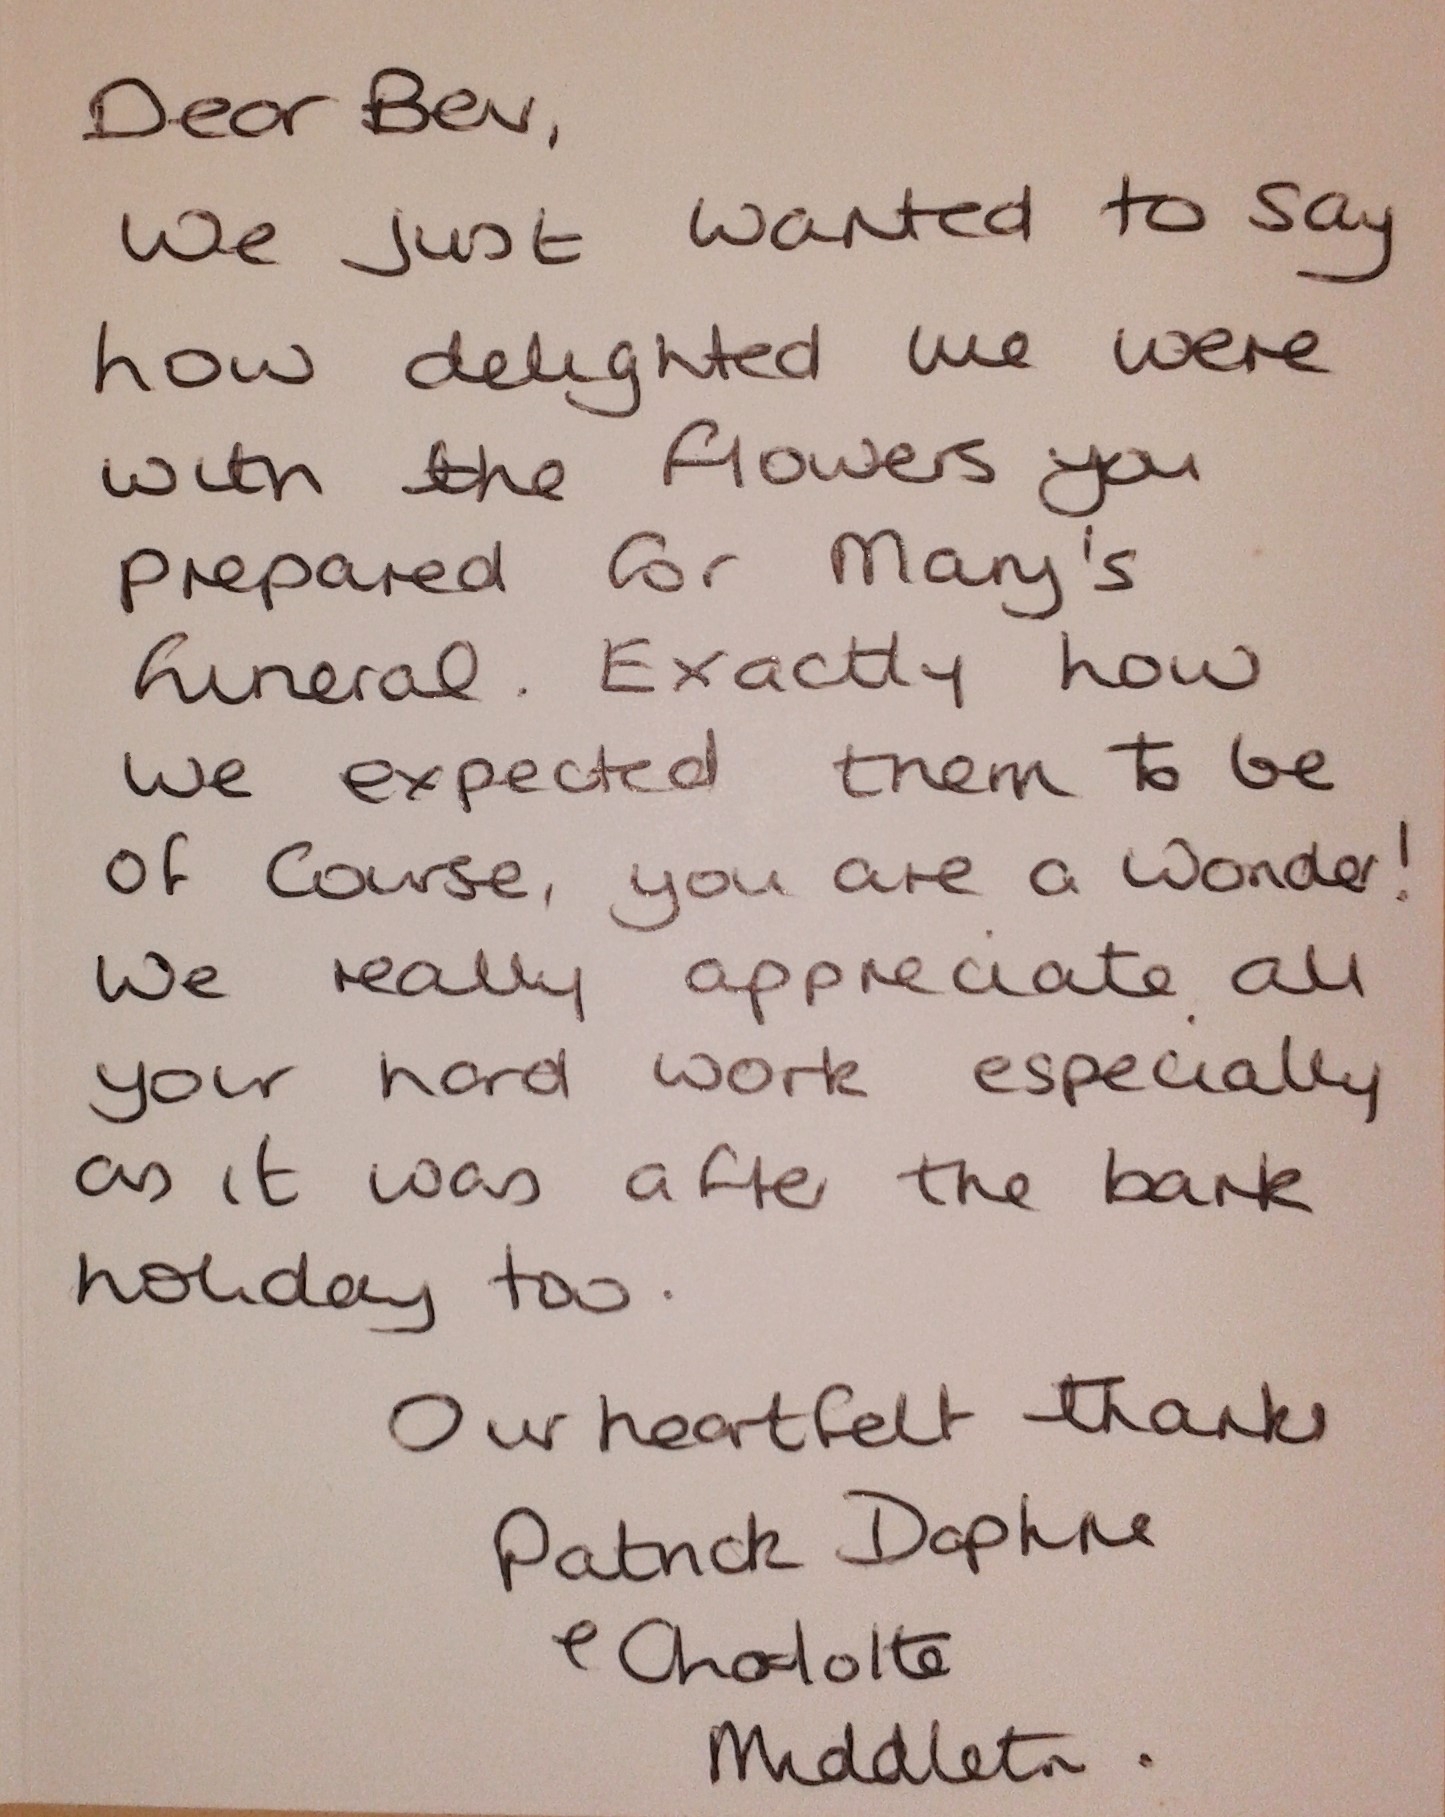 Dear Bev,
We just wanted to say
how delighted we were
with the flowers you
prepared for Mary's
funeral. Exactly how
we expected them to be
of course, you are a wonder!
We really appreciate all
your hard work especially
as it was after the bank
holiday too.
Our heartfelt thanks
Patrick Daphne
& Charlotte
Middleton.